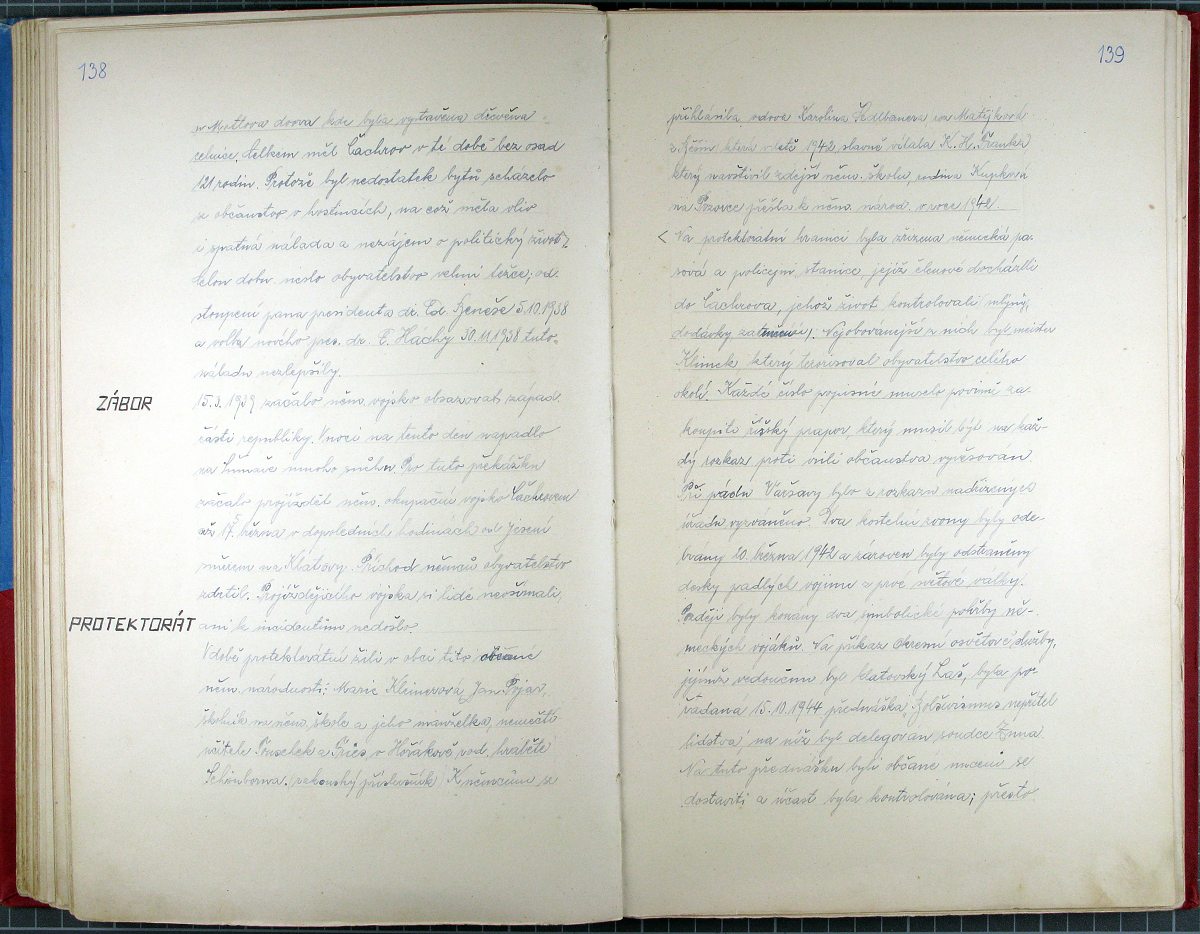 138
u Mottlova dvora kde byla vystavěna dřevěna
celnice. Celkem měl Čachrov v té době bez osad
121 rodin. Protože byl nedostatek bytů scházelo
se občanstvo v hostincích, na což měla vliv
i špatná nálada a nezájem o politický život.
Celou dobu neslo obyvatelstvo velmi těžce, od-
stoupení pana presidenta dr. Ed. Beneše 5.10.1938
a volba nového pres. dr. E. Háchy 30.11.1938 tuto
náladu nezlepšily.
ZÁBOR
15.3.1939 začalo něm. vojsko obsazovat západ.
části republiky. V noci na tento den napadlo
na Šumavě mnoho sněhu. Pro tuto překážku
začalo projíždět něm. okupační vojsko Čachrovem
až 17. března v dopoledních hodinách od Javorné
směrem na Klatovy. Příchod němců obyvatelstvo
zdrtil. Projíždějícího vojska si lidé nevšímali,
PROTEKTORÁT
ani k incidentům nedošlo.
V době protektorátu žili v obci tito občané
něm. národnosti: Marie Kleinerová, Jan Pojar,
školník na něm. škole a jeho manželka, němečtí
učitelé Pouselek a Gries, v Hořákově vod. hraběte
Schönborna. (rakouský příslušník) K němcům se
139
přihlásila vdova Karolina Sedlbauerová Matějková
která v létě 1942 slavně vítala K. H. Franka
který navštívil zdejší něm. školu, rodina Kupková
na Pozovce přešla k něm. národ. v roce 1942.
< Na protektorátní hranici byla zřízena německá pa-
sová a policejní stanice, jejíž členové docházeli
do Čachrova, jehož život kontrolovali mlýny,
dodávky, zatemnění). Nejobávanější z nich byl meister
Klimek který terorisoval obyvatelstvo celého
okolí. Každé číslo popisné muselo povině za-
koupiti říšský prapor, který musil být na kaž-
dý rozkaz proti vůli občanstva vyvěšován.
Při pádu Varšavy bylo z rozkazu nadřízených
úřadu vyzváněno. Dva kostelní zvony byly ode-
brány 20. března 1942 a zároven byly odstraněny
desky padlých vojínu z prve světové války.
Později byly konány dva symbolické pohřby ně-
meckých vojáků. Na příkaz Okresní osvětové služby,
jejímž vedoucím byl klatovský Laš, byla po-
řádaná 15.10.1944 přednáška „Bolševismus nepřítel
lidstva" na níž byl delegován soudce Zuna.
Na tuto přednášku byli občané nuceni se
dostaviti a účast byla kontrolována; přesto